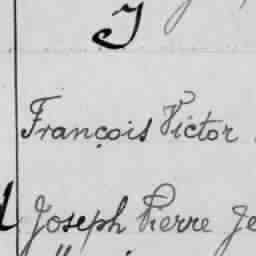 J
François Victor
Joseph Pierre Je